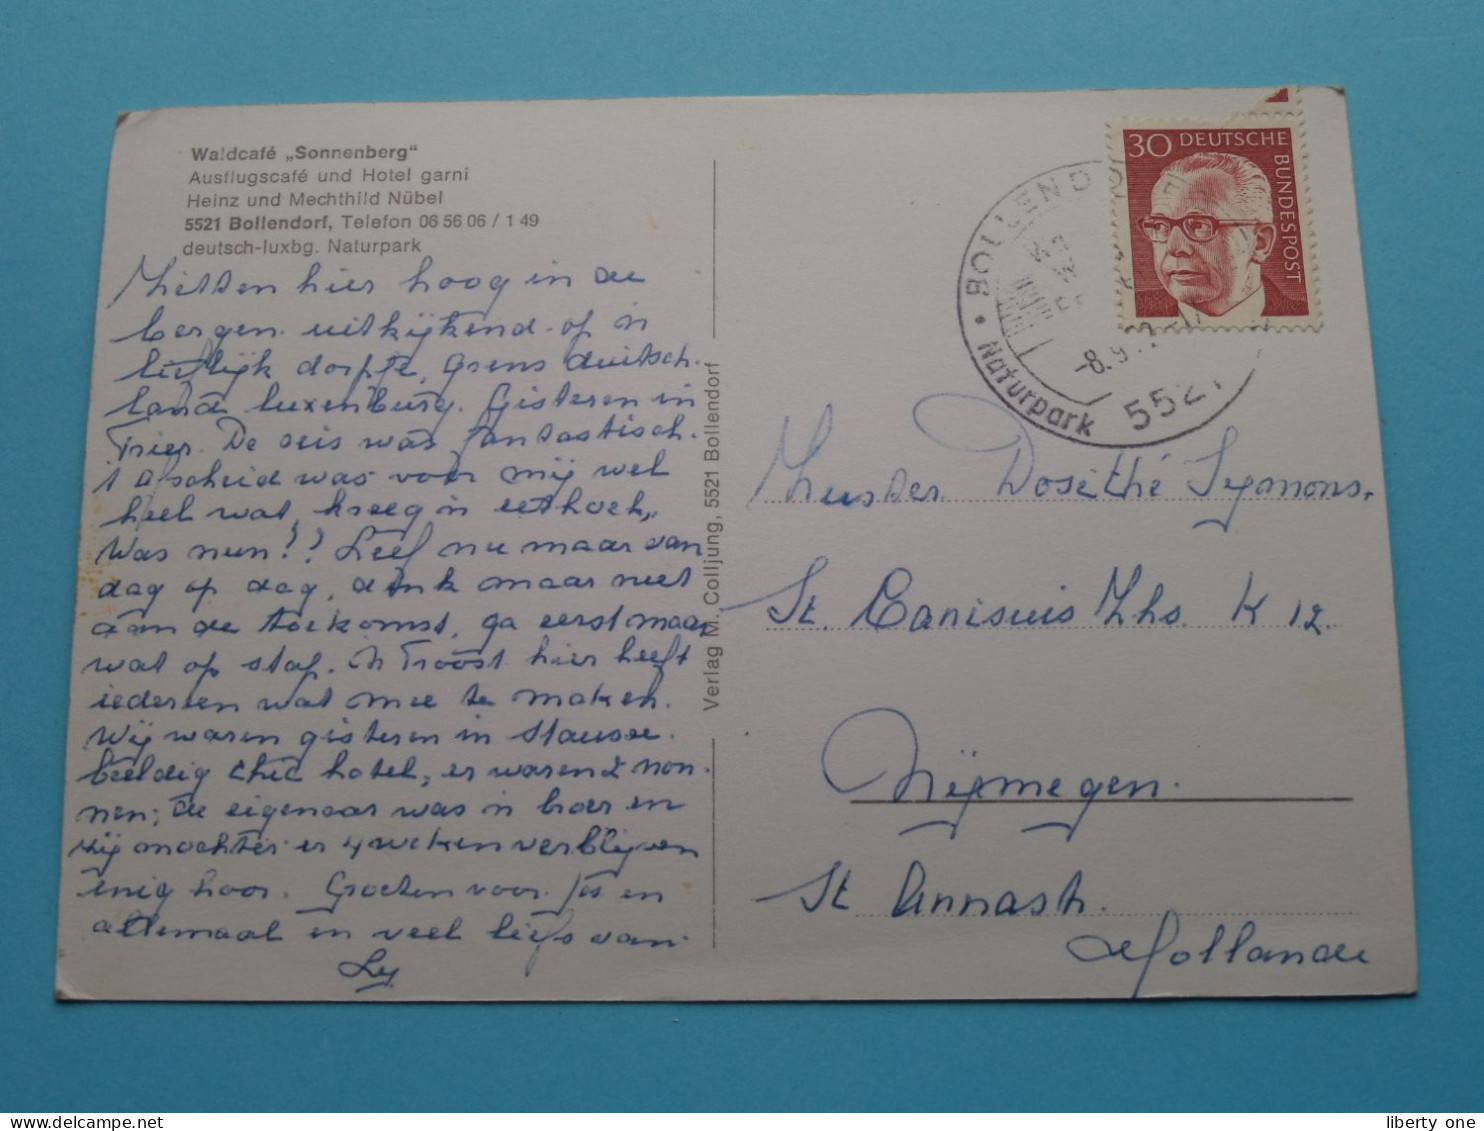 Waldcafé „Sonnenberg"
Ausflugscafé und Hotel garni
Heinz und Mechthild Nübel
5521 Bollendorf, Telefon 06 56 06 / 1 49
deutsch-luxbg. Naturpark
Zitten hier hoog in de
bergen uitkijkend op 'n
liefelijk dorpje, Grens duitsch-
land luxenburg. Gisteren in
Trier. De reis was fantastisch.
't afscheid was voor mij wel
heel wat, kreeg 'n
was nun!? Leef nu maar van
dag op dag, denk maar niet
aan de toekomst, ga eerst maar
wat op stap. 'n Troost hier heeft
iedereen wat mee te maken.
Wij waren gisteren in
beeldig chic hotel, er waren 2 non-
nen; de eigenaar was 'n broer en
zij mochten er 4 weken verblijven
enig hoor. Groeten voor Jos en
allemaal en veel liefs van
Ly
Verlag M. Colljung, 5521 Bollendorf
30 DEUTSCHE
BUNDESPOST
BOLLEND
-8.9.7
Naturpark 5521
Zuster Dosithé Symons.
St. Canisius Zhs. K 12.
Nijmegen.
St Annastr.
Hollande
liberty one